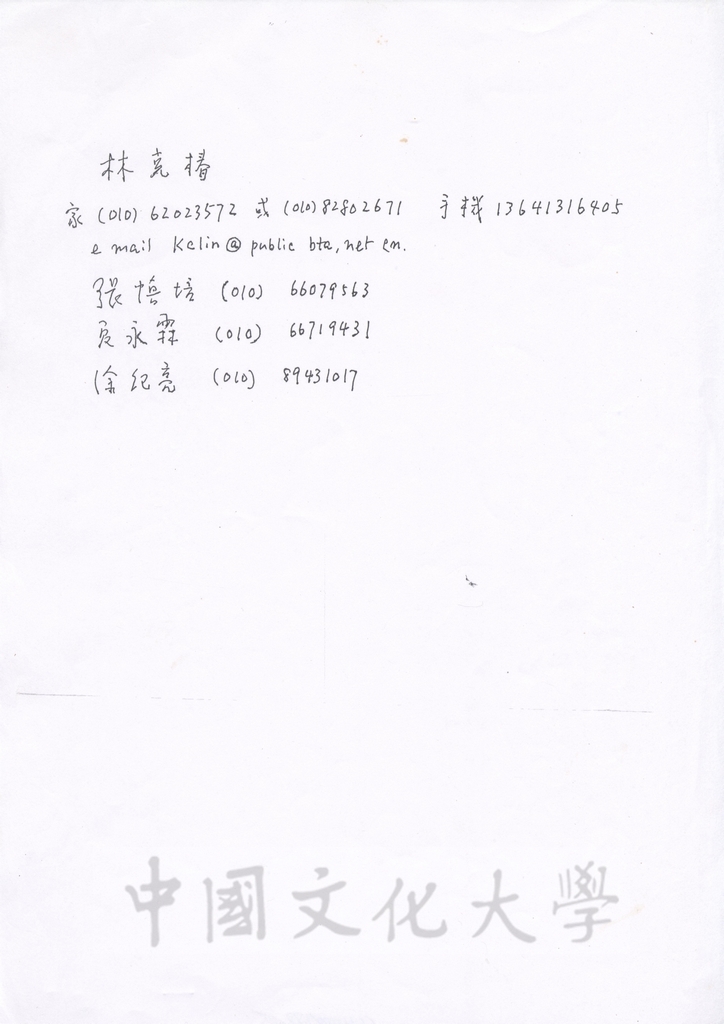 林克椿
家 (010) 62023572 或 (010) 82802671 手機 13641316405
e mail Kclin@public bta.net cn.
張 培 (010) 66079563
夏永霖 (010) 66719431
徐紀亮 (010) 89431017
中國文化大學